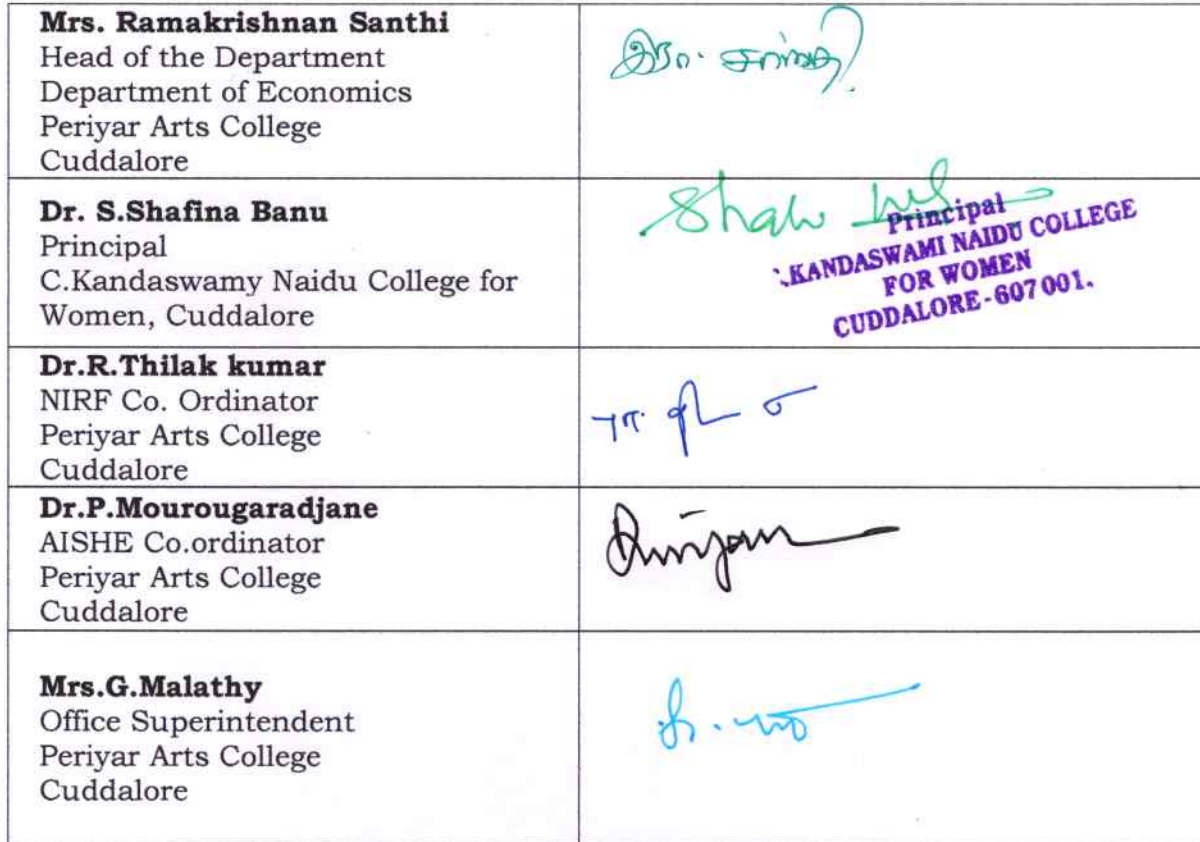 Mrs. Ramakrishnan Santhi
Head of the Department
Department of Economics
Periyar Arts College
Cuddalore
இரா. சாந்தி
Dr. S.Shafina Banu
Principal
C.Kandaswamy Naidu College for
Women, Cuddalore
Principal
.KANDASWAMI NAIDU COLLEGE
FOR WOMEN
CUDDALORE-607 001.
Dr.R.Thilak kumar
NIRF Co. Ordinator
Periyar Arts College
Cuddalore
Dr.P.Mourougaradjane
AISHE Co.ordinator
Periyar Arts College
Cuddalore
Mrs.G.Malathy
Office Superintendent
Periyar Arts College
Cuddalore